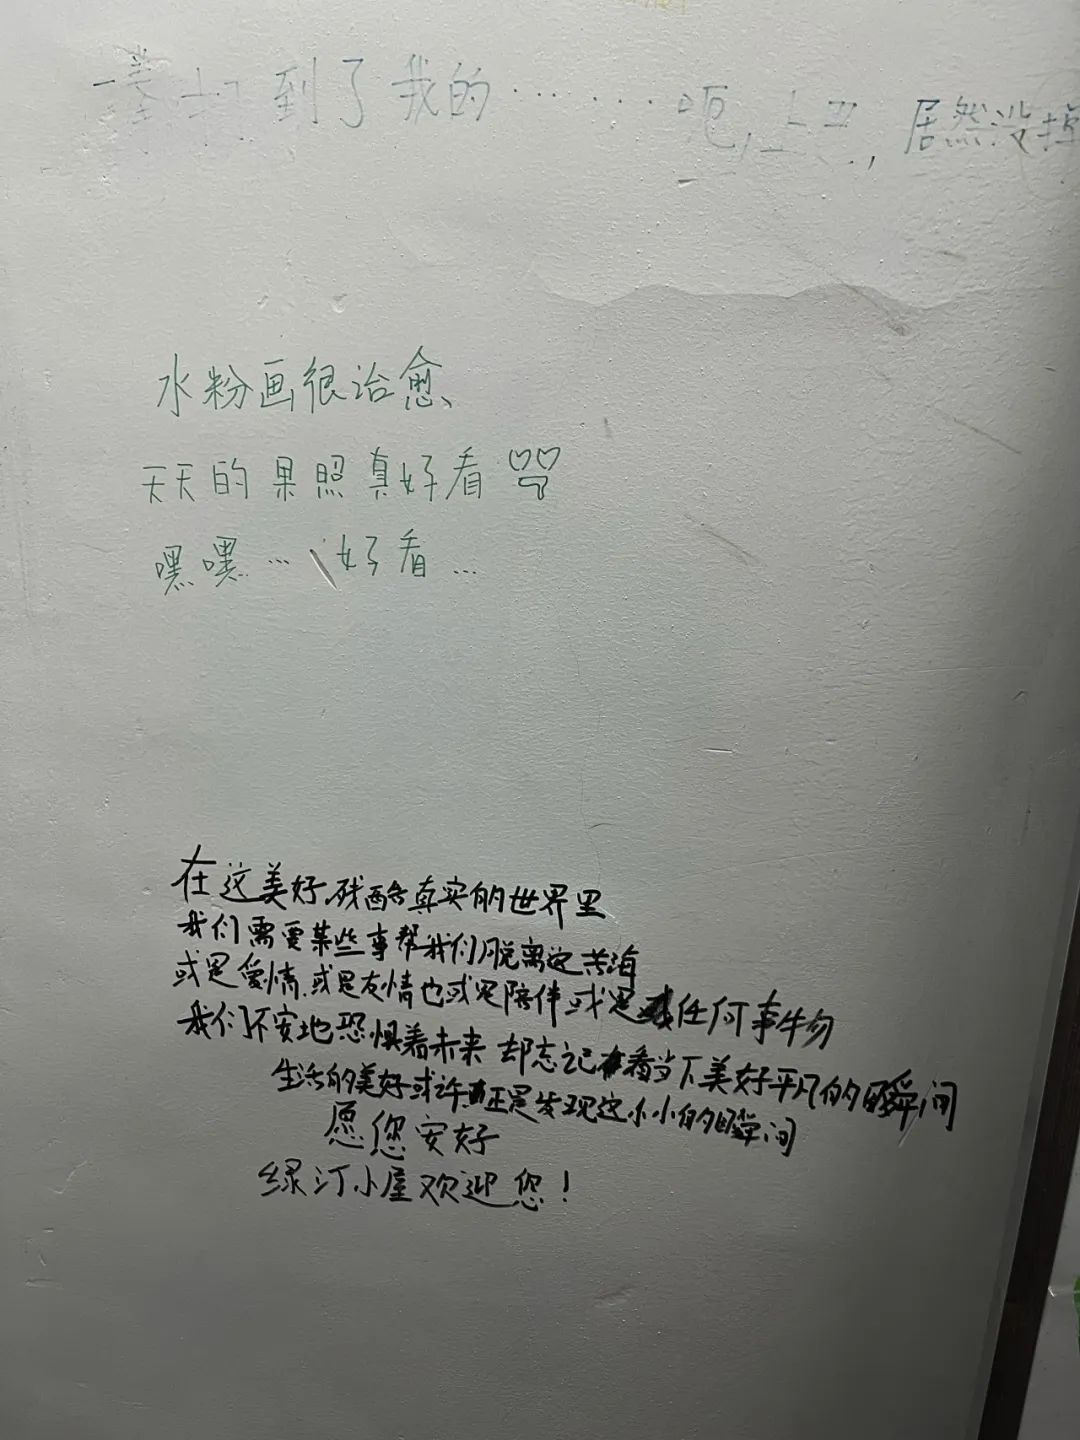 到了我的……呃,上卫,居然没掉
水粉画很治愈、
天天的果照真好看
嘿嘿…好看…
在这美好、残酷真实的世界里
我们需要某些事帮我们脱离这苦海
或是爱情、或是友情也或是陪伴或是任何事物
我们不安地恐惧着未来 却忘记看当下美好平凡的瞬间
生活的美好或许正是发现这小小的瞬间
愿您安好
绿汀小屋欢迎您!